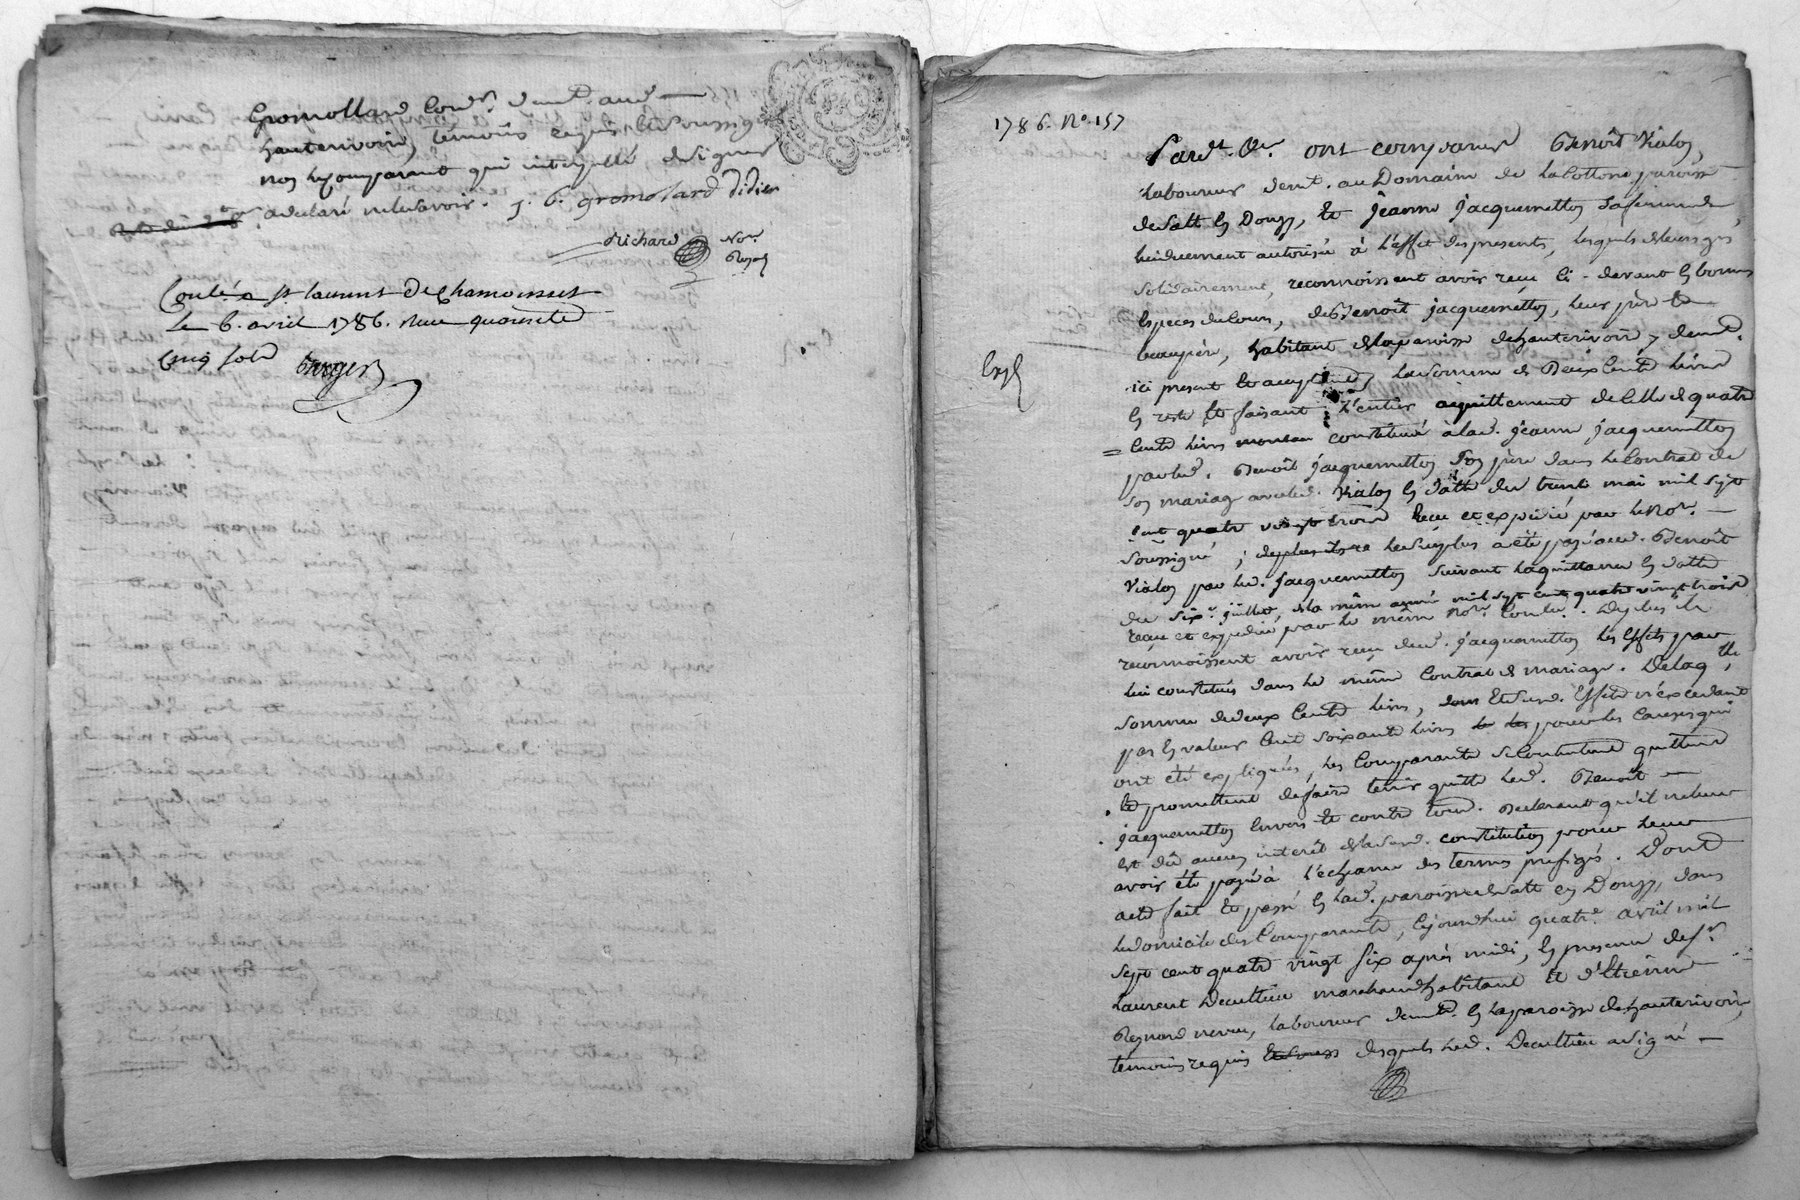 Gromollard Cord.r demt. aud.
hauterivoire, témoins requis, et soussignés
non le comparant qui interpellé de signer
a declaré ne le savoir. J. B. gromolard didier
Richard Nore. Royal
Controlé a St laurent De Chamousset
Le 6. avril 1786. Reçu quinze s
Cinq sols barger
1786. No. 157
Expé
Pardt. &a. ont comparus Benoît Vialon,
laboureur demt. au Domaine de la Cottone paroisse
de Salt En Donzy, Et Jeanne Jacquemetton sa femme de
lui duement autorisée à l'effet des presents, lesquels de leurs grés
solidairement, reconnoissent avoir reçu ci-devant En bonnes
Especes de cours, de Benoît Jacquemetton, leur père Et
beaupère, habitant de la paroisse de hauterivoire, demt.
ici present Et acceptant, la somme de Deux Cents livres
En reste Et faisant l'entier acquittement de Celle de quatre
Cents livres constitué à lad. Jeanne Jacquemetton
par led. Benoît Jacquemetton son père dans le Contrat de
son mariage avec led. Vialon En datte du trente mai mil sept
cent quatre vingt trois reçu et expédié par le Nore.
soussigné ; le surplus a été payé aud. Benoît
Vialon par led. Jacquemetton suivant la quittance En datte
du six. juillet, de la même année mil sept cent quatre vingt trois
reçu et expédié par le même Nore. De plus ils
reconnoissent avoir reçu dud. Jacquemetton les Effets par
lui constitués dans le même Contrat de mariage. De laqlle
somme de deux Cents livres, Et desd. Effets n'excedant
pas En valeur Cent soixante livres pour les Causes qui
ont été expliquées, les Comparants se Contentent quittent
Et promettent de faire tenir quitte led. Benoît
Jacquemetton Envers Et contre tous. Declarant qu'il ne leur
Est dû aucun interêt de lasusd. constitution pour leur
avoir été payé à l'echeance des termes prefigés. Dont
acte fait Et passé En lad. paroisse de Salt En Donzy, dans
le domicile des Comparants, Cejourdhui quatre. avril mil
sept cent quatre vingt six après midi, En presence de sr.
Laurent Decultieu marchand habitant Et d'Etienne
laboureur demt. En la paroisse de hauterivoire,
temoins requis desquels led. Decultieu a signé